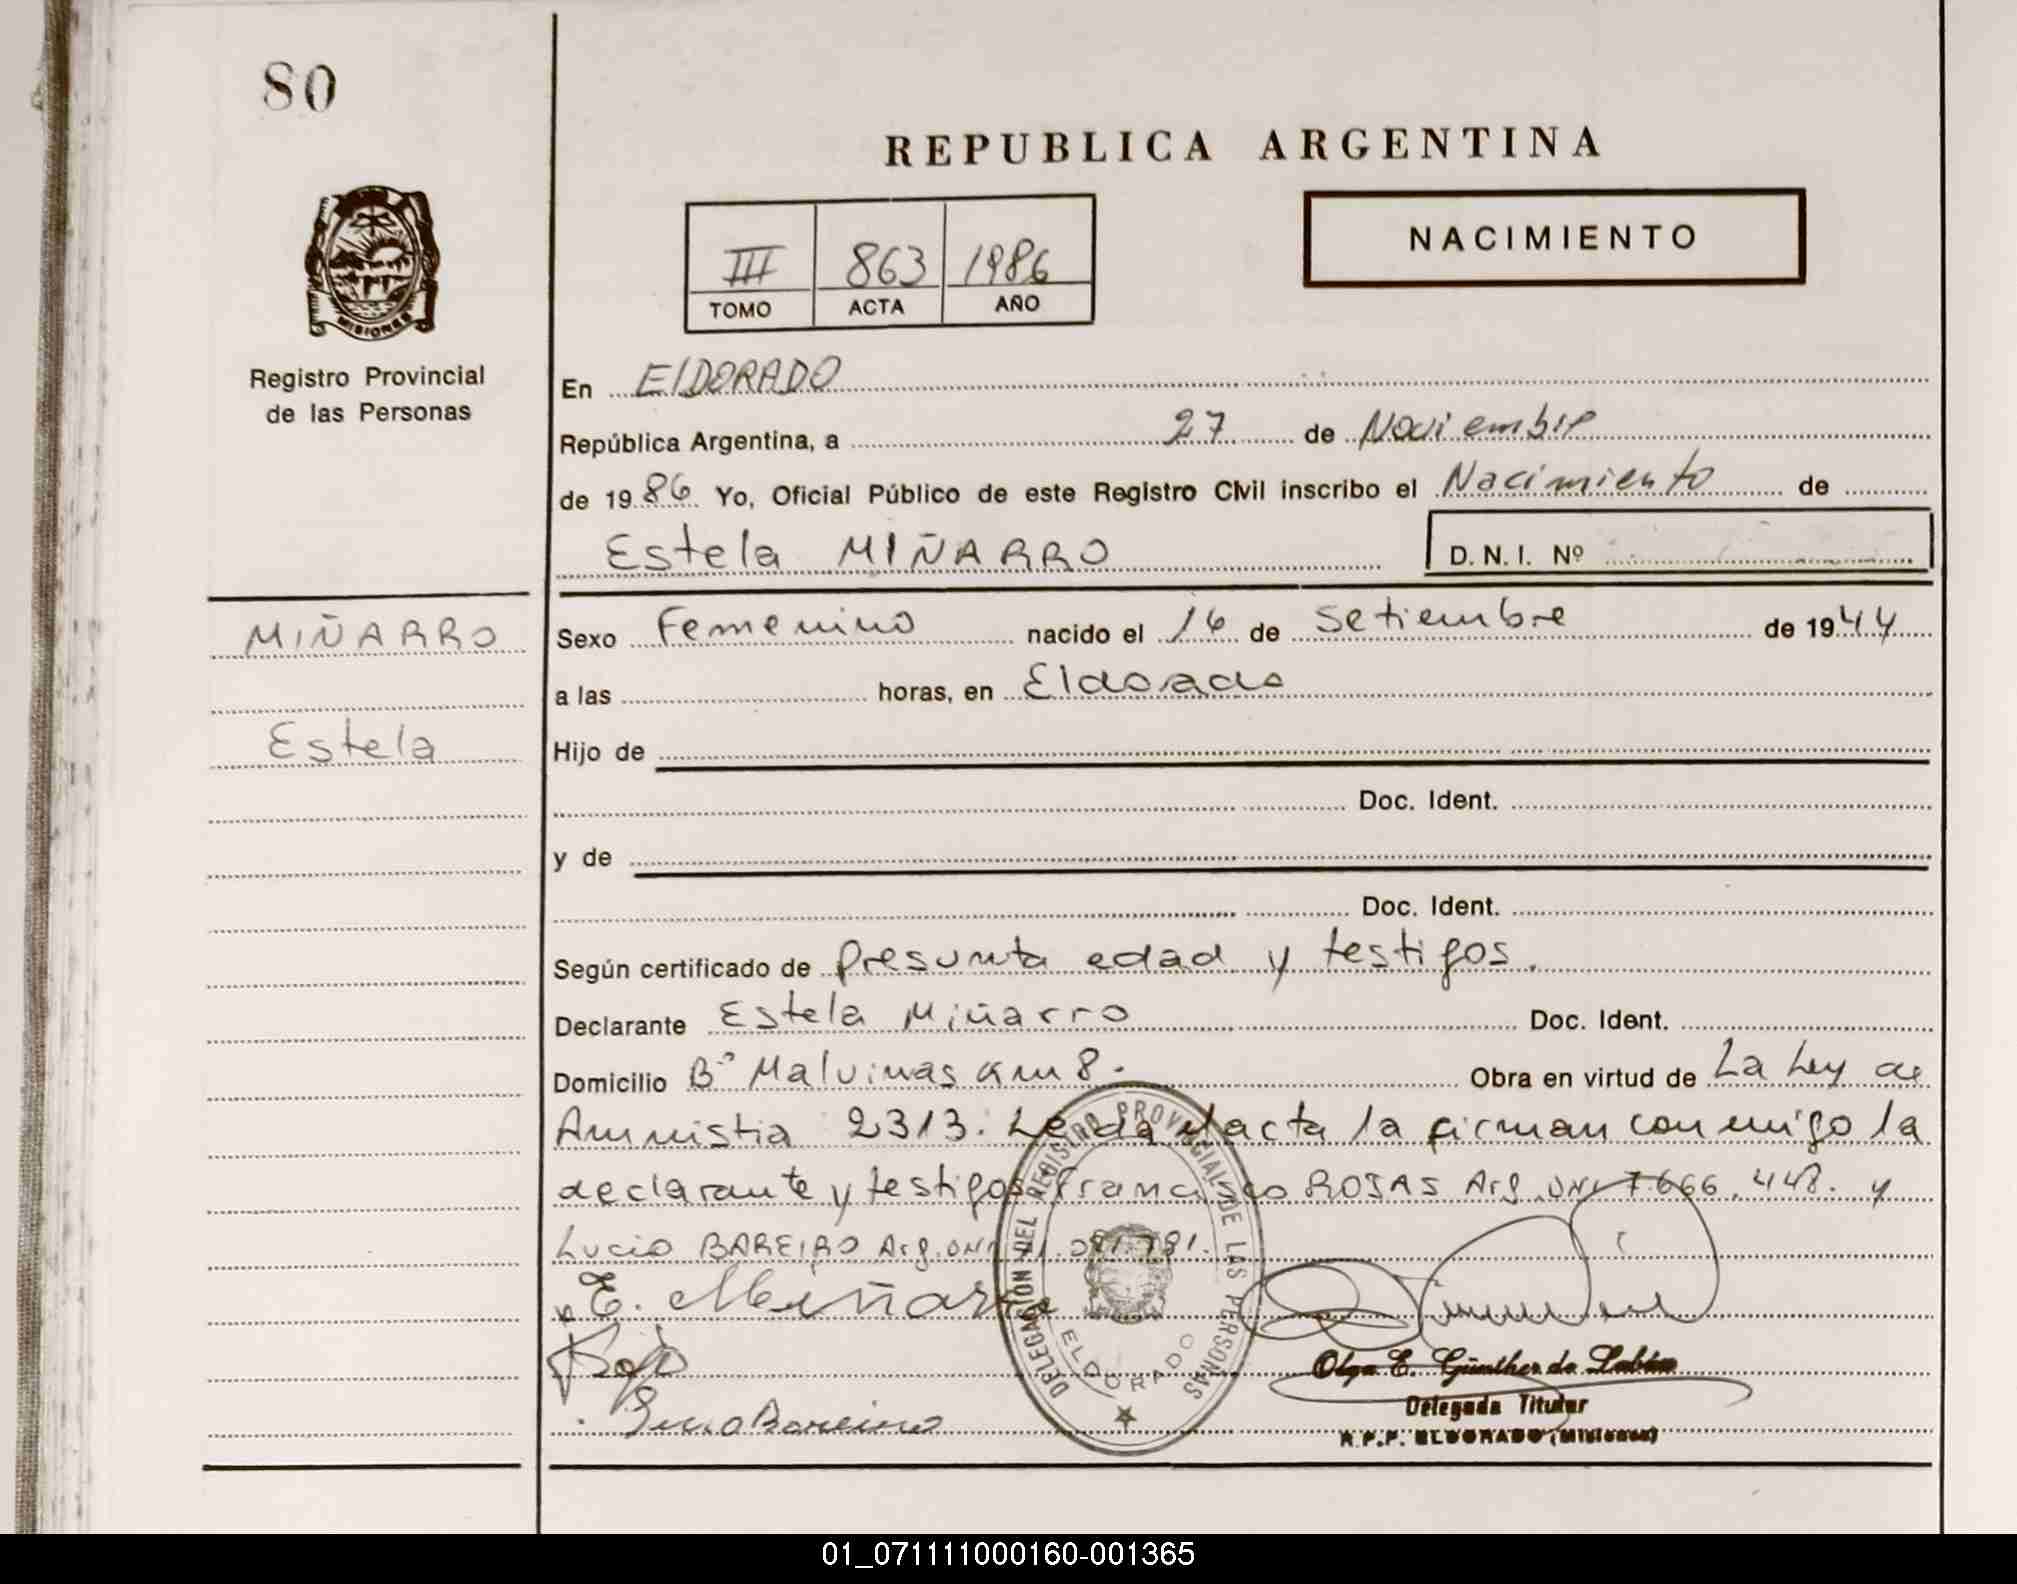 80
REPUBLICA ARGENTINA
III 863 1986
TOMO ACTA AÑO
NACIMIENTO
MISIONES
Registro Provincial
de las Personas
En ElDORADO
República Argentina, a 27 de Noviembre
de 1986 Yo, Oficial Público de este Registro Civil inscribo el Nacimiento de
Estela MIÑARRO D.N.I. Nº
MIÑARRO
Estela
Sexo Femenino nacido el 16 de Setiembre de 1944
a las horas, en Eldorado
Hijo de
Doc. Ident.
y de
Doc. Ident.
Según certificado de presunta edad y testigos.
Declarante Estela Miñarro Doc. Ident.
Domicilio Bº Malvinas Km 8. Obra en virtud de La Ley de
Amnistia 2313. Leida el acta la firman conmigo la
declarante y testigos Francisco ROJAS Arg. DNI 7.666.448. y
Lucio BAREIRO Arg. DNI
E. Miñarro
Rojas
Lucio Bareiro
DELEGACION DEL REGISTRO PROVINCIAL DE LAS PERSONAS
ELDORADO
Olga E. Günther de
Delegada Titular
R.P.P. ELDORADO (Misiones)
01_071111000160-001365